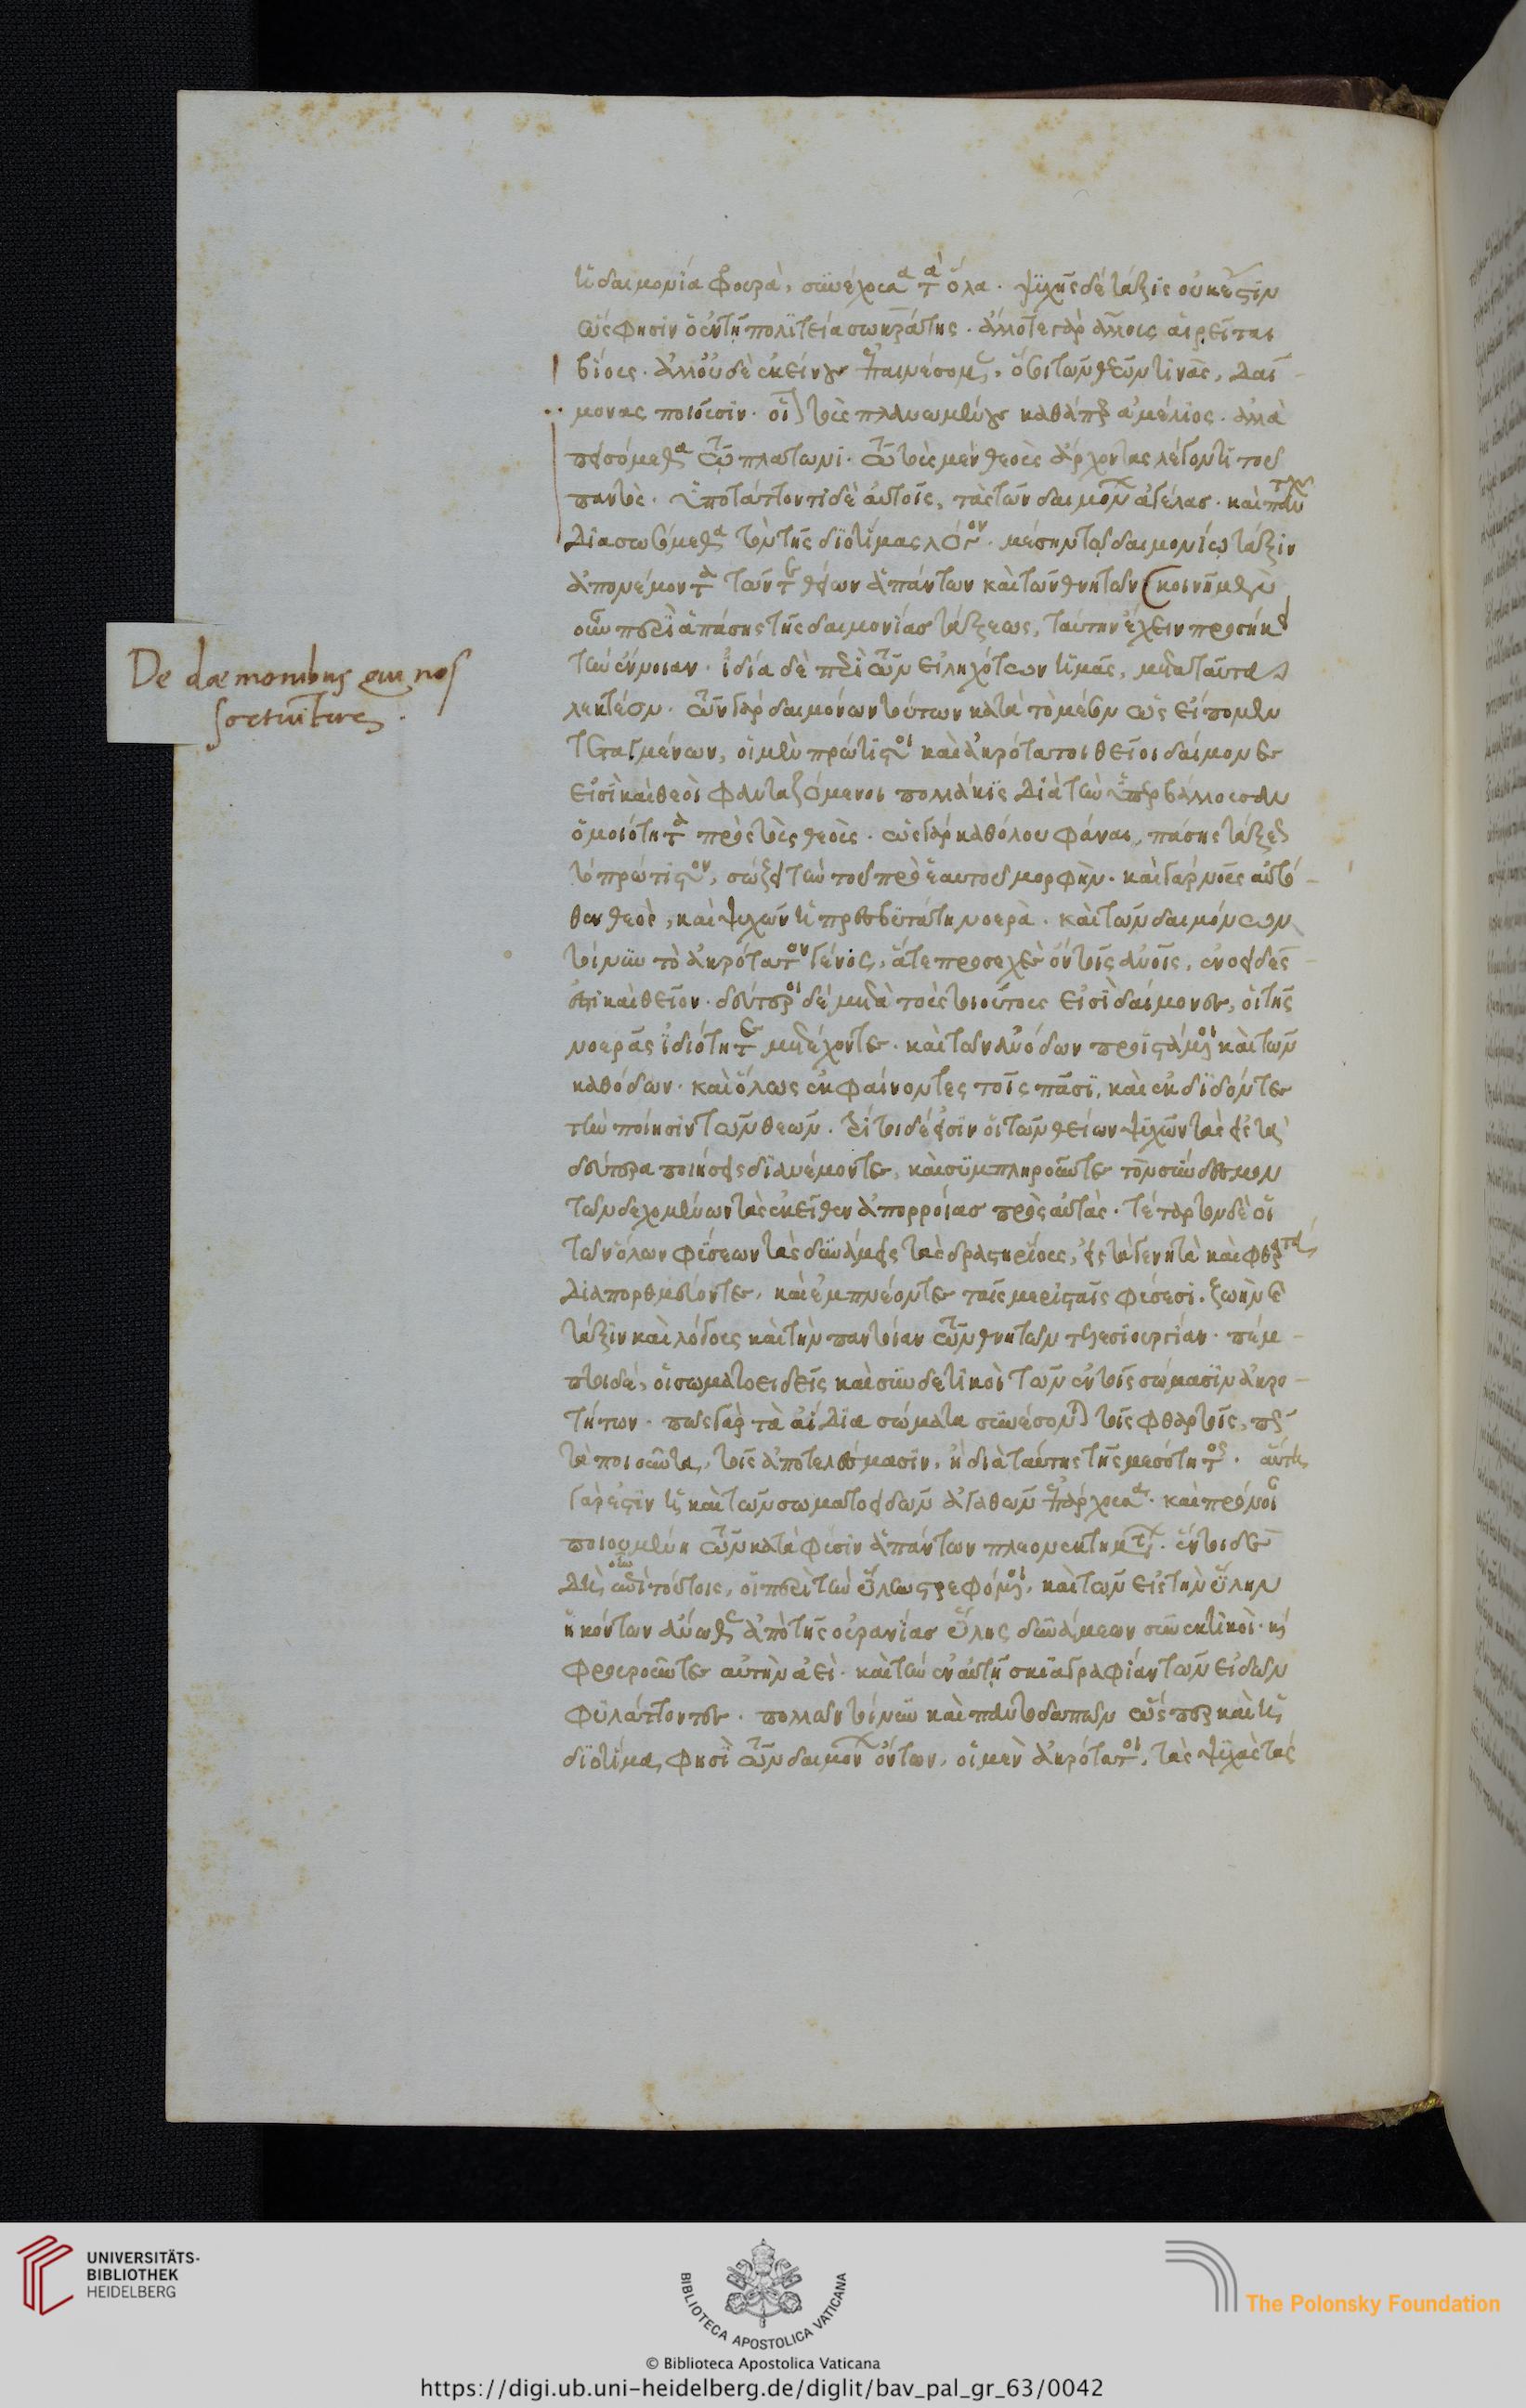 ἡ δαιμονία φρουρὰ, συνέχουσα τὰ ὅλα. ψυχῆς δὲ τάξις οὐκ ἔστιν
ὥς φησιν ὁ ἐν τῇ πολιτεία σωκράτης. ἄλλοτε γὰρ ἄλλους αἱρεῖται
βίους. ἀλλ' οὐδὲ ἐκείνους ἐπαινέσομεν, ὅσοι τῶν θεῶν τινὰς, δαί
μονας ποιοῦσιν. οἷον τοὺς πλανωμένους καθάπερ ἀμέλιος. ἀλλὰ
πεισόμεθα τῶ πλάτωνι. τῶ τοὺς μὲν θεοὺς ἄρχοντας λέγοντι τοῦ
παντὸς. ὑποτάττοντι δὲ αὐτοῖς, τὰς τῶν δαιμόνων ἀγέλας. καὶ
διασωσόμεθα τὸν τῆς διοτίμας λόγον. μέσην τῶ δαιμονίω τάξιν
ἀπονέμοντα τῶν τε θείων ἁπάντων καὶ τῶν θνητῶν κοινῇ μὲν
οὖν περὶ ἁπάσης τῆς δαιμονίας τάξεως, ταύτην ἔχειν προσήκει
τὴν ἔννοιαν. ἰδία δὲ περὶ τῶν εἰληχότων ἡμᾶς, μετὰ ταῦτα
λεκτέον. τῶν γὰρ δαιμόνων τούτων κατὰ τὸ μέσον ὡς εἴπομεν
τεταγμένων, οἱ μὲν πρώτιστοι καὶ ἀκρότατοι θεῖοι δαίμονες
εἰσὶ καὶ θεοὶ φανταζόμενοι πολλάκις διὰ τὴν ὑπερβάλλουσαν
ὁμοιότητα πρὸς τοὺς θεοὺς. ὡς γὰρ καθόλου φάναι, πάσης τάξεως
τὸ πρώτιστον, σώζει τὴν τοῦ πρὸ ἑαυτοῦ μορφὴν. καὶ γὰρ νοῦς αὐτό
θεν θεὸς, καὶ ψυχῶν ἡ πρεσβυτάτη νοερὰ. καὶ τῶν δαιμόνων
τοίνυν τὸ ἀκρότατον γένος, ἅτε προσεχὲς ὂν τοῖς θεοῖς, ἑνοειδές
ἐστι καὶ θεῖον. δεύτεροι δὲ μετὰ τοὺς τοιούτους εἰσὶ δαίμονες, οἱ τῆς
νοερᾶς ἰδιότητος μετέχοντες. καὶ τῶν ἀνόδων προϊστάμενοι καὶ τῶν
καθόδων. καὶ ὅλως ἐκφαίνοντες τοῖς πᾶσι, καὶ ἐκδιδόντες
τὴν ποίησιν τῶν θεῶν. τρίτοι δέ εἰσιν οἱ τῶν θείων ψυχῶν τὰς εἰς τὰ
δεύτερα ποιήσεις διανέμοντες, καὶ συμπληροῦντες τὸν σύνδεσμον
τῶν δεχομένων τὰς ἐκεῖθεν ἀπορροίας πρὸς αὐτάς. τέταρτοι δὲ οἱ
τῶν ὅλων φύσεων τὰς δυνάμεις τὰς δραστηρίους, εἰς τὰ γενητὰ καὶ φθαρτά
διαπορθμεύοντες, καὶ ἐμπνέοντες ταῖς μερισταῖς φύσεσι. ζωὴν καὶ
τάξιν καὶ λόγους καὶ τὴν παντοίαν τῶν θνητῶν τελεσιουργίαν. πέμ
πτοι δὲ, οἱ σωματοειδεῖς καὶ συνδετικοὶ τῶν ἐν τοῖς σώμασιν ἀκρο
τήτων. πῶς γὰρ τὰ ἀΐδια σώματα συνέσονται τοῖς φθαρτοῖς, περὶ
τὰ ποιοῦντα, τοῖς ἀποτελέσμασιν, ἢ διὰ ταύτης τῆς μεσότητος. αὕτη
γὰρ ἐστὶν ἡ καὶ τῶν σωματοειδῶν ἀγαθῶν ὑπάρχουσα. καὶ πρόνοιαν
ποιουμένη τῶν κατὰ φύσιν ἁπάντων πλεονεκτημάτων. ἕκτοι δὲ
ἐπὶ τούτοις, οἱ περὶ τὴν ὕλην στρεφόμενοι, καὶ τῶν εἰς τὴν ὕλην
ἡκόντων ἄνωθεν ἀπὸ τῆς οὐρανίας ὕλης δυνάμεων συνεκτικοὶ. καὶ
φρουροῦντες αὐτὴν ἀεὶ. καὶ τὴν ἐν αὐτῇ σκιαγραφίαν τῶν εἰδῶν
φυλάττοντες. πολλῶν τοίνυν καὶ παντοδαπῶν ὥσπερ καὶ ἡ
διοτίμα φησὶ τῶν δαιμόνων ὄντων, οἱ μὲν ἀκρότατοι, τὰς ψυχὰς τὰς
De dæmonibus qui nos
sortiuntur.
UNIVERSITÄTS-
BIBLIOTHEK
HEIDELBERG
BIBLIOTECA APOSTOLICA VATICANA
The Polonsky Foundation
© Biblioteca Apostolica Vaticana
https://digi.ub.uni-heidelberg.de/diglit/bav_pal_gr_63/0042